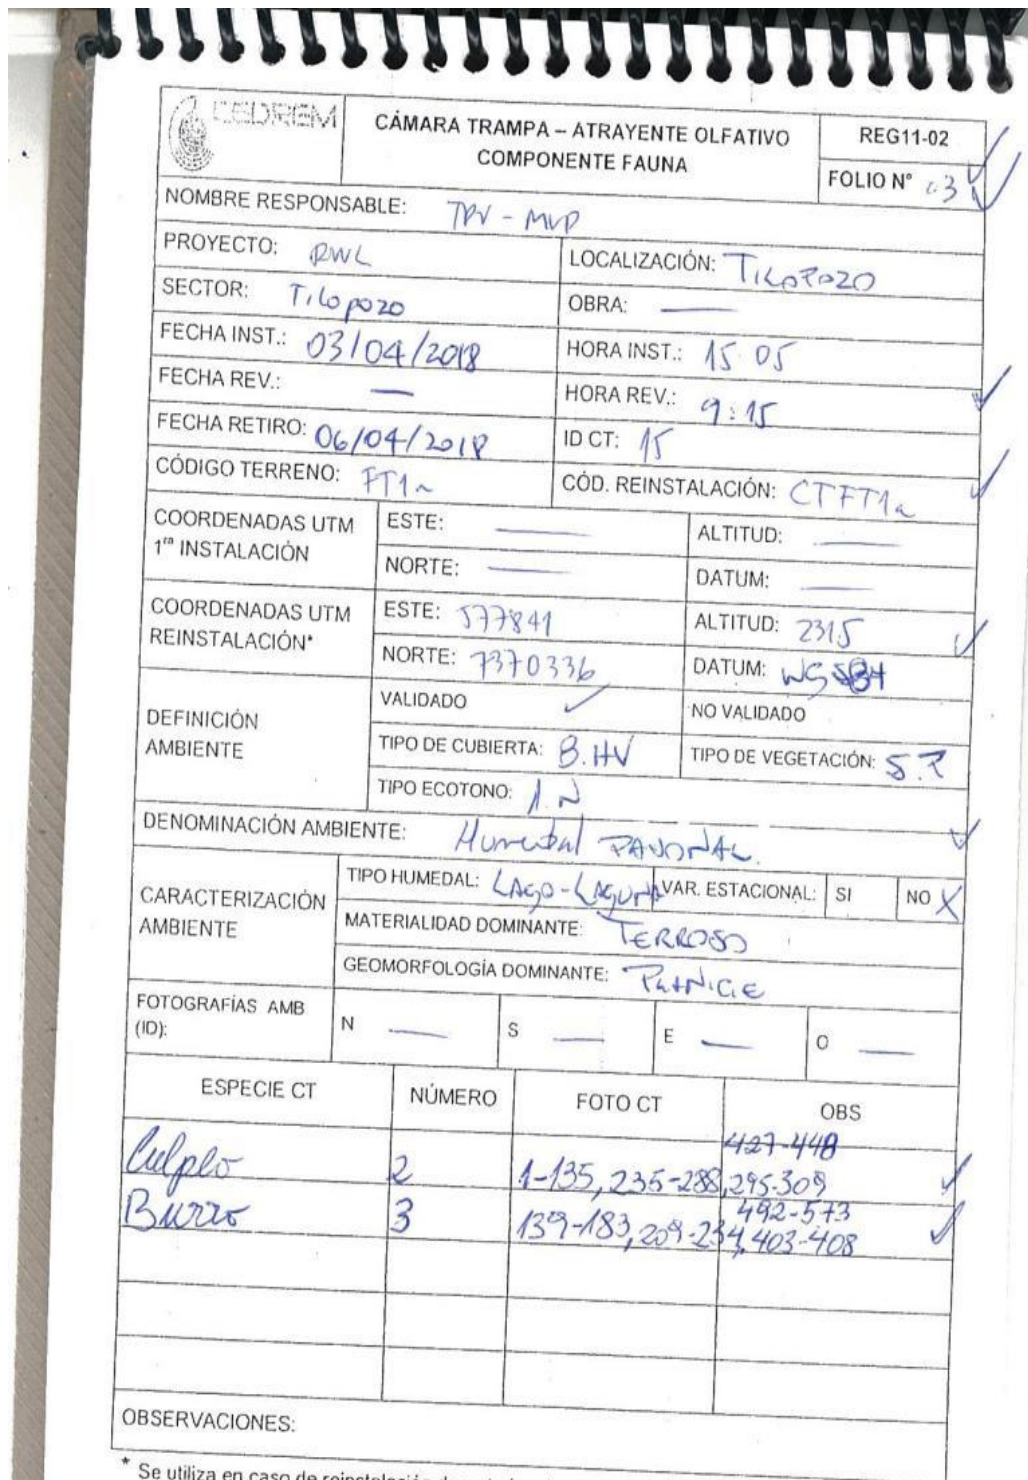 CEDREM
CÁMARA TRAMPA – ATRAYENTE OLFATIVO
COMPONENTE FAUNA
REG11-02
FOLIO N° 03
NOMBRE RESPONSABLE: TPV - MVP
PROYECTO: RWL
LOCALIZACIÓN: TILOPOZO
SECTOR: Tilopozo
OBRA: —
FECHA INST.: 03/04/2018
HORA INST.: 15:05
FECHA REV.: —
HORA REV.: 9:15
FECHA RETIRO: 06/04/2018
ID CT: 15
CÓDIGO TERRENO: FT1a
CÓD. REINSTALACIÓN: CTFT1a
COORDENADAS UTM
1ra INSTALACIÓN
ESTE: —
ALTITUD: —
NORTE: —
DATUM: —
COORDENADAS UTM
REINSTALACIÓN*
ESTE: 577841
ALTITUD: 2315
NORTE: 7370336
DATUM: WGS84
DEFINICIÓN
AMBIENTE
VALIDADO ✓
NO VALIDADO
TIPO DE CUBIERTA: B.HV
TIPO DE VEGETACIÓN: 5.P
TIPO ECOTONO: 1.N
DENOMINACIÓN AMBIENTE: Humedal PAJONAL.
CARACTERIZACIÓN
AMBIENTE
TIPO HUMEDAL: LAGO-LAGUNA
VAR. ESTACIONAL: SI NO X
MATERIALIDAD DOMINANTE: TERROSO
GEOMORFOLOGÍA DOMINANTE: PLANICIE
FOTOGRAFÍAS AMB
(ID):
N —
S —
E —
O —
ESPECIE CT NÚMERO FOTO CT OBS
427-448
Culpeo 2 1-135, 235-288, 295-309
492-573
Burro 3 139-183, 209-234, 403-408
OBSERVACIONES:
* Se utiliza en caso de